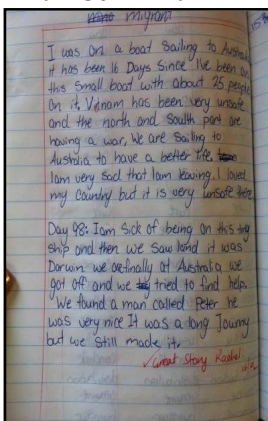 migrant
I was on a boat sailing to Australia
it has been 16 Days since I've been on
this small boat with about 25 people
on it. Vietnam has been very unsafe
and the north and south part are
having a war, We are sailing to
Australia to have a better life.
I am very sad that I am leaving. I loved
my country but it is very unsafe there
Day 98: I am sick of being on this tiny
ship and then we saw land it was
Darwin we are finally at Australia we
got off and we tried to find help.
We found a man called Peter he
was very nice It was a long Journy
but we still made it.
✓ Great Story Rachel